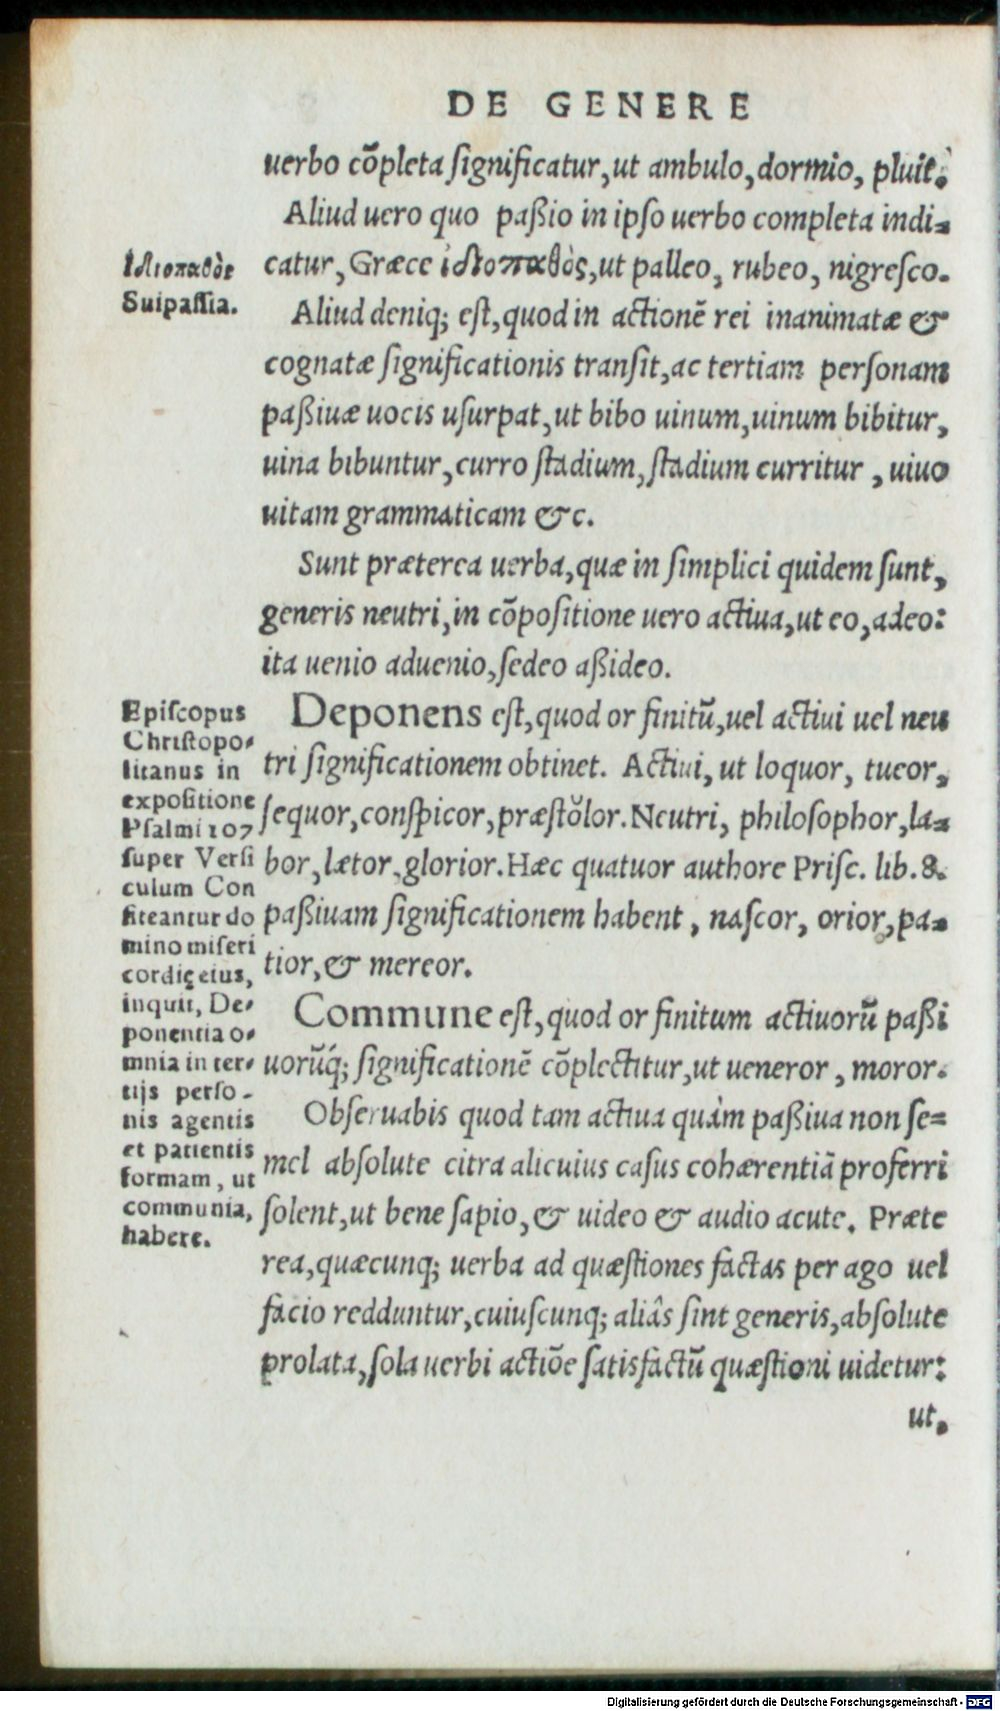 DE GENERE
uerbo cõpleta ſignificatur, ut ambulo, dormio, pluit.
Aliud uero quo paßio in ipſo uerbo completa indi=
catur, Græce ἰδιοπαθὸς, ut palleo, rubeo, nigreſco.
Aliud deniq; eſt, quod in actionẽ rei inanimatæ &
cognatæ ſignificationis tranſit, ac tertiam perſonam
paßiuæ uocis uſurpat, ut bibo uinum, uinum bibitur,
uina bibuntur, curro ſtadium, ſtadium curritur, uiuo
uitam grammaticam &c.
Sunt præterea uerba, quæ in ſimplici quidem ſunt,
generis neutri, in cõpoſitione uero actiua, ut eo, adeo:
ita uenio aduenio, ſedeo aßideo.
Deponens eſt, quod or finitũ, uel actiui uel neu
tri ſignificationem obtinet. Actiui, ut loquor, tueor,
ſequor, conſpicor, præſtŏlor. Neutri, philoſophor, la=
bor, lætor, glorior. Hæc quatuor authore Priſc. lib. 8.
paßiuam ſignificationem habent, naſcor, orior, pa=
tior, & mereor.
Commune eſt, quod or finitum actiuorũ paßi
uorũq́; ſignificationẽ cõplectitur, ut ueneror, moror.
Obſeruabis quod tam actiua quàm paßiua non ſe=
mel abſolute citra alicuius caſus cohærentiã proferri
ſolent, ut bene ſapio, & uideo & audio acute. Præte
rea, quæcunq; uerba ad quæſtiones factas per ago uel
facio redduntur, cuiuſcunq; aliâs ſint generis, abſolute
prolata, ſola uerbi actiõe ſatisfactũ quæſtioni uidetur:
ut.
ἰδιοπαθὸς
Suipaſſia.
Epiſcopus
Chriſtopo⸗
litanus in
expoſitione
Pſalmi 107
ſuper Verſi
culum Con
fiteantur do
mino miſeri
cordię eius,
inquit, De⸗
ponentia o⸗
mnia in ter⸗
tijs perſo-
nis agentis
et patientis
formam, ut
communia,
habere.
Digitalisierung gefördert durch die Deutsche Forschungsgemeinschaft - DFG